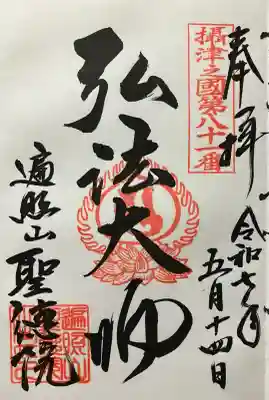 奉拝
令和七年
五月十四日
摂津之國第八十一番
弘法大師
遍照山聖徳院